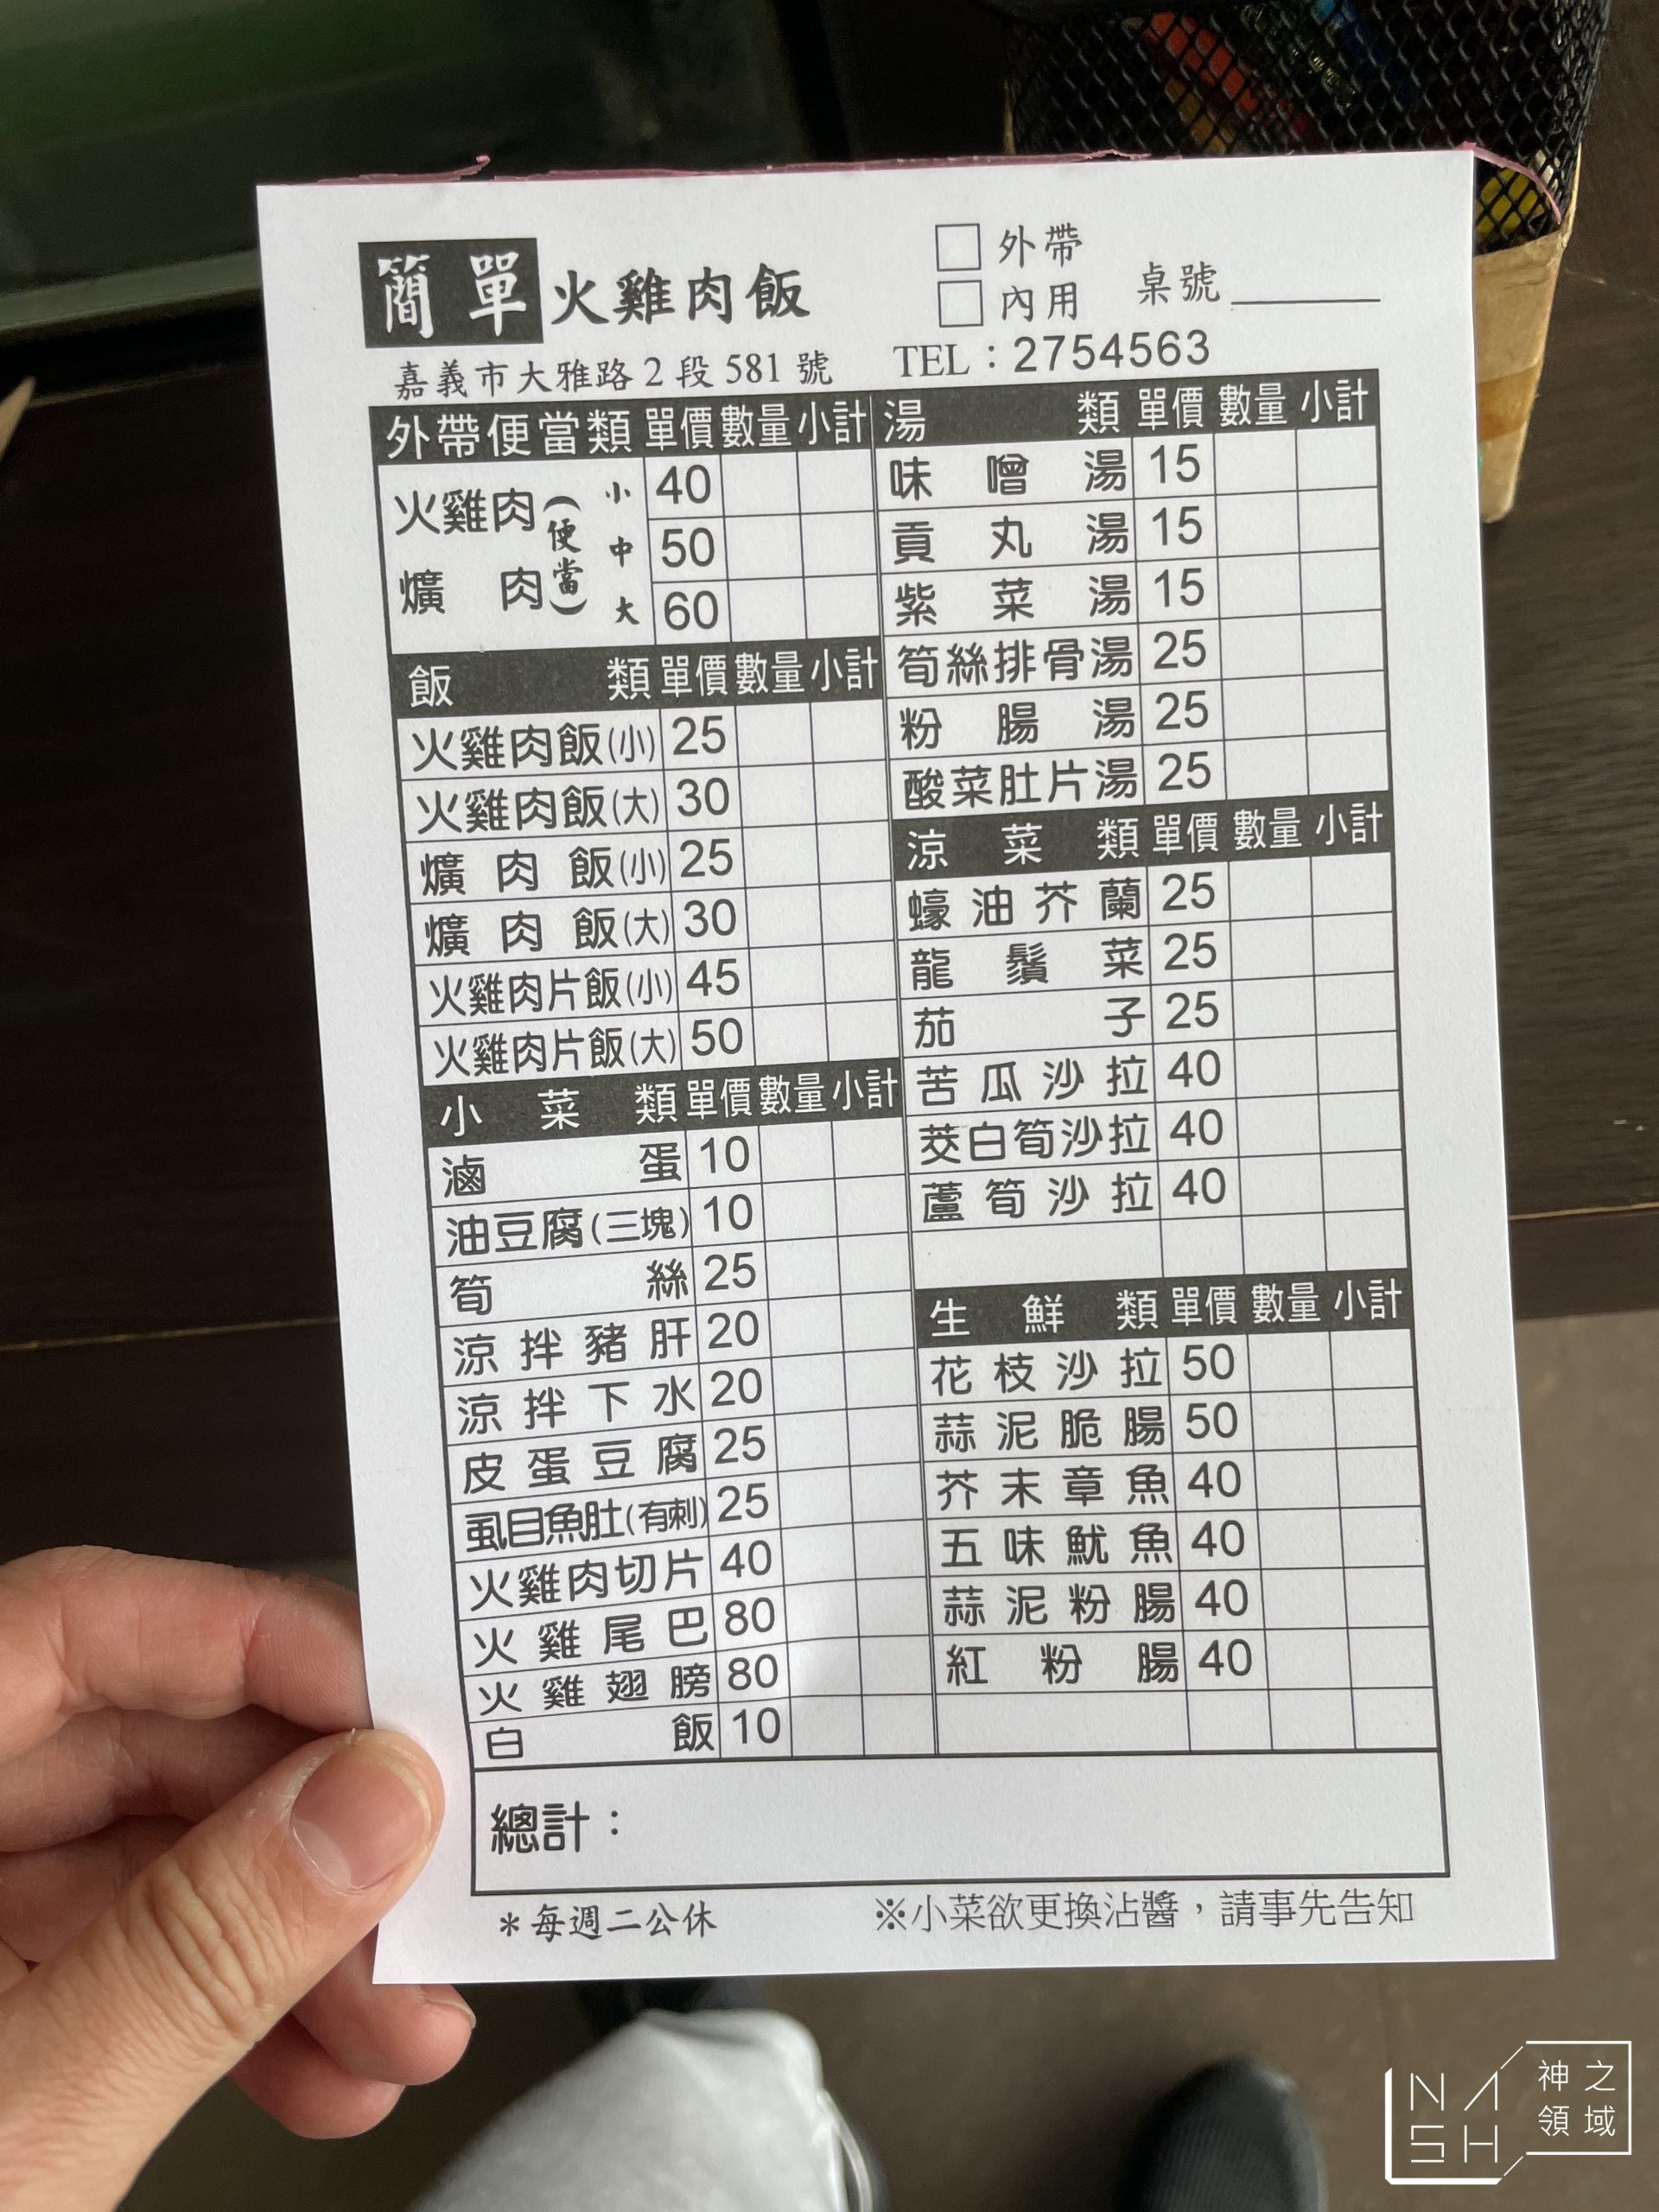 簡單火雞肉飯
嘉義市大雅路2段581號
□外帶
□內用 桌號
TEL：2754563
外帶便當類 單價 數量 小計
火雞肉 爌肉 (便當)
小 40
中 50
大 60
飯類 單價 數量 小計
火雞肉飯(小) 25
火雞肉飯(大) 30
爌肉飯(小) 25
爌肉飯(大) 30
火雞肉片飯(小) 45
火雞肉片飯(大) 50
小菜類 單價 數量 小計
滷蛋 10
油豆腐(三塊) 10
筍絲 25
涼拌豬肝 20
涼拌下水 20
皮蛋豆腐 25
虱目魚肚(有刺) 25
火雞肉切片 40
火雞尾巴 80
火雞翅膀 80
白飯 10
湯類 單價 數量 小計
味噌湯 15
貢丸湯 15
紫菜湯 15
筍絲排骨湯 25
粉腸湯 25
酸菜肚片湯 25
涼菜類 單價 數量 小計
蠔油芥蘭 25
龍鬚菜 25
茄子 25
苦瓜沙拉 40
茭白筍沙拉 40
蘆筍沙拉 40
生鮮類 單價 數量 小計
花枝沙拉 50
蒜泥脆腸 50
芥末章魚 40
五味魷魚 40
蒜泥粉腸 40
紅粉腸 40
總計：
＊每週二公休
※小菜欲更換沾醬，請事先告知
NASH
神之領域